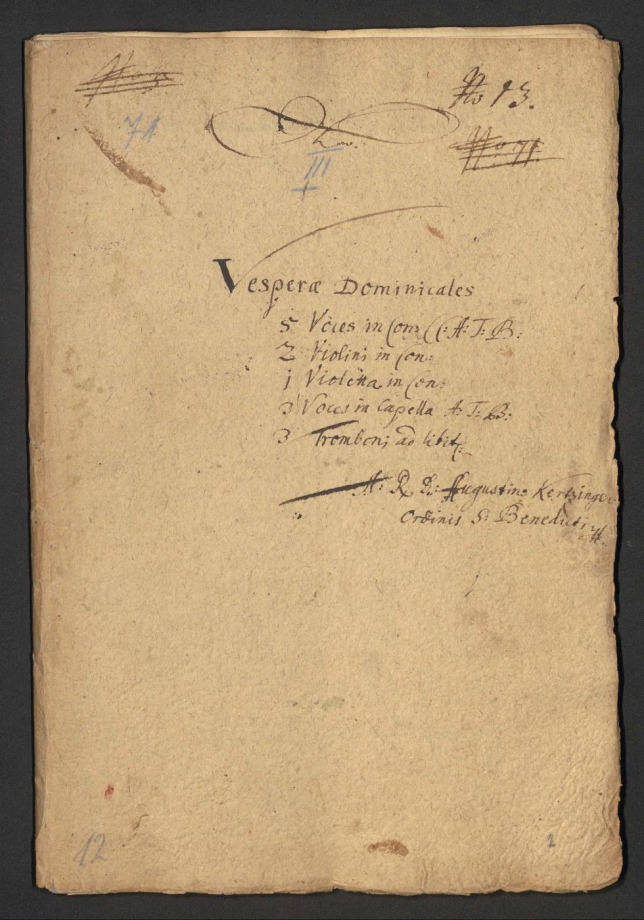 No 13.
71
III
No 71.
Vesperæ Dominicales
5 Voces in Con: CC: A: T: B:
2 Violini in Con:
1 Violetta in Con:
3 Voces in Capella A: T: B:
3 Tromboni ad libit:
A: R. D: Augustino Kertzinger
Ordinis S: Benedicti
12
1